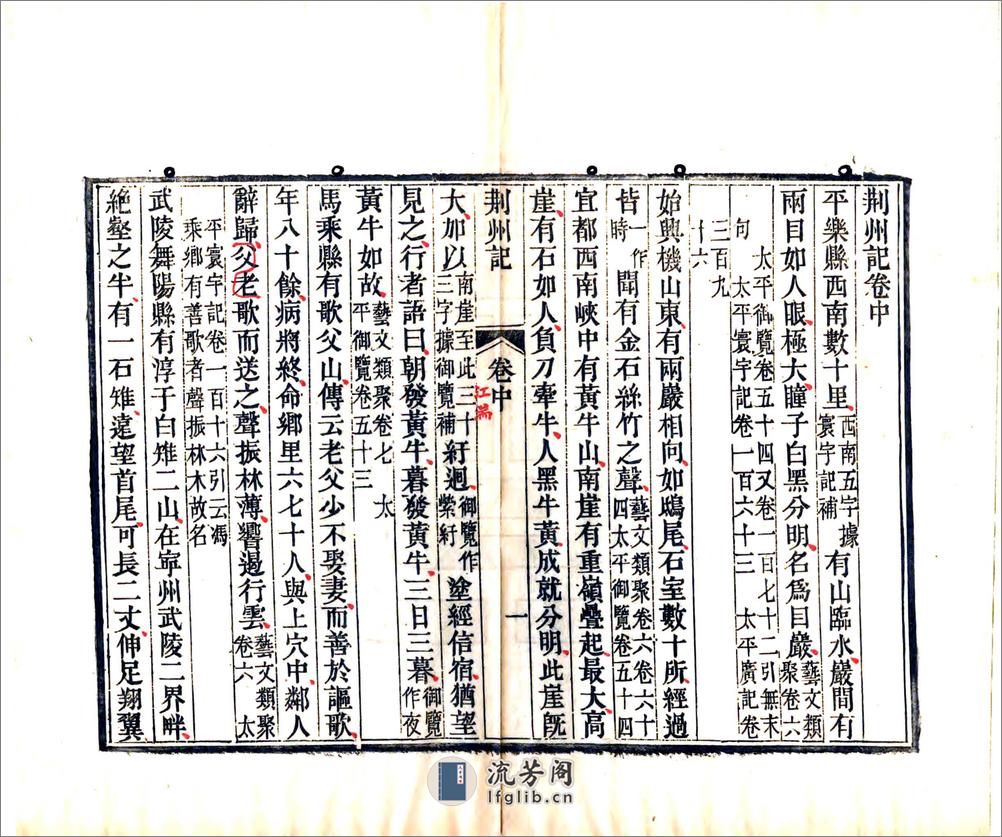 荆州記卷中
平樂縣西南數十里西南五字據寰宇記補有山臨水巖間有
兩目如人眼極大瞳子白黑分明名爲目巖藝文類聚卷六
太平御覽卷五十四又卷一百七十二引無末
句 太平寰宇記卷一百六十三 太平廣記卷
三百九
十六
始興機山東有兩巖相向如鴟尾石室數十所經過
皆一作時聞有金石絲竹之聲藝文類聚卷六卷六十四太平御覽卷五十四
宜都西南峽中有黃牛山南崖有重嶺疊起最大高
崖有石如人負刀牽牛人黑牛黃成就分明此崖旣
荆州記 卷中 一
江瀉
大加以南崖至此三十三字據御覽補紆迴御覽作縈紆塗經信宿猶望
見之行者語曰朝發黃牛暮發黃牛三日三暮御覽作夜
黃牛如故藝文類聚卷七 太平御覽卷五十三
馬乘縣有歌父山傳云老父少不娶妻而善於謳歌
年八十餘病將終命鄉里六七十人與上穴中鄰人
辭歸父老歌而送之聲振林薄響遏行雲藝文類聚卷六 太
平寰宇記卷一百十六引云馮
乘鄉有善歌者聲振林木故名
武陵舞陽縣有淳于白雉二山在寧州武陵二界畔
絶壑之半有一石雉遠望首尾可長二丈伸足翔翼
流芳阁
lfglib.cn